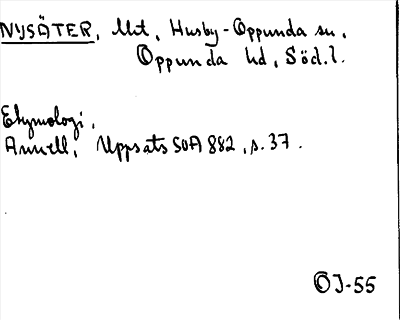 NYSÄTER, Mt, Husby-Oppunda sn.
Oppunda hd, Södl.
Etymologi.
Annell, Uppsats SOA 882, s. 37.
OJ-55